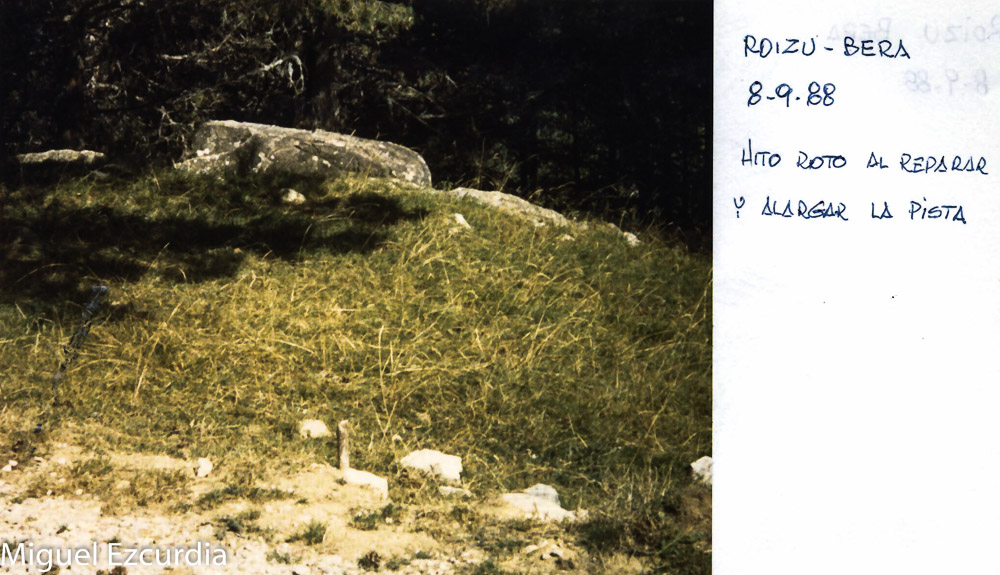 ROIZU - BERA
8-9-88
HITO ROTO AL REPARAR
Y ALARGAR LA PISTA
Miguel Ezcurdia